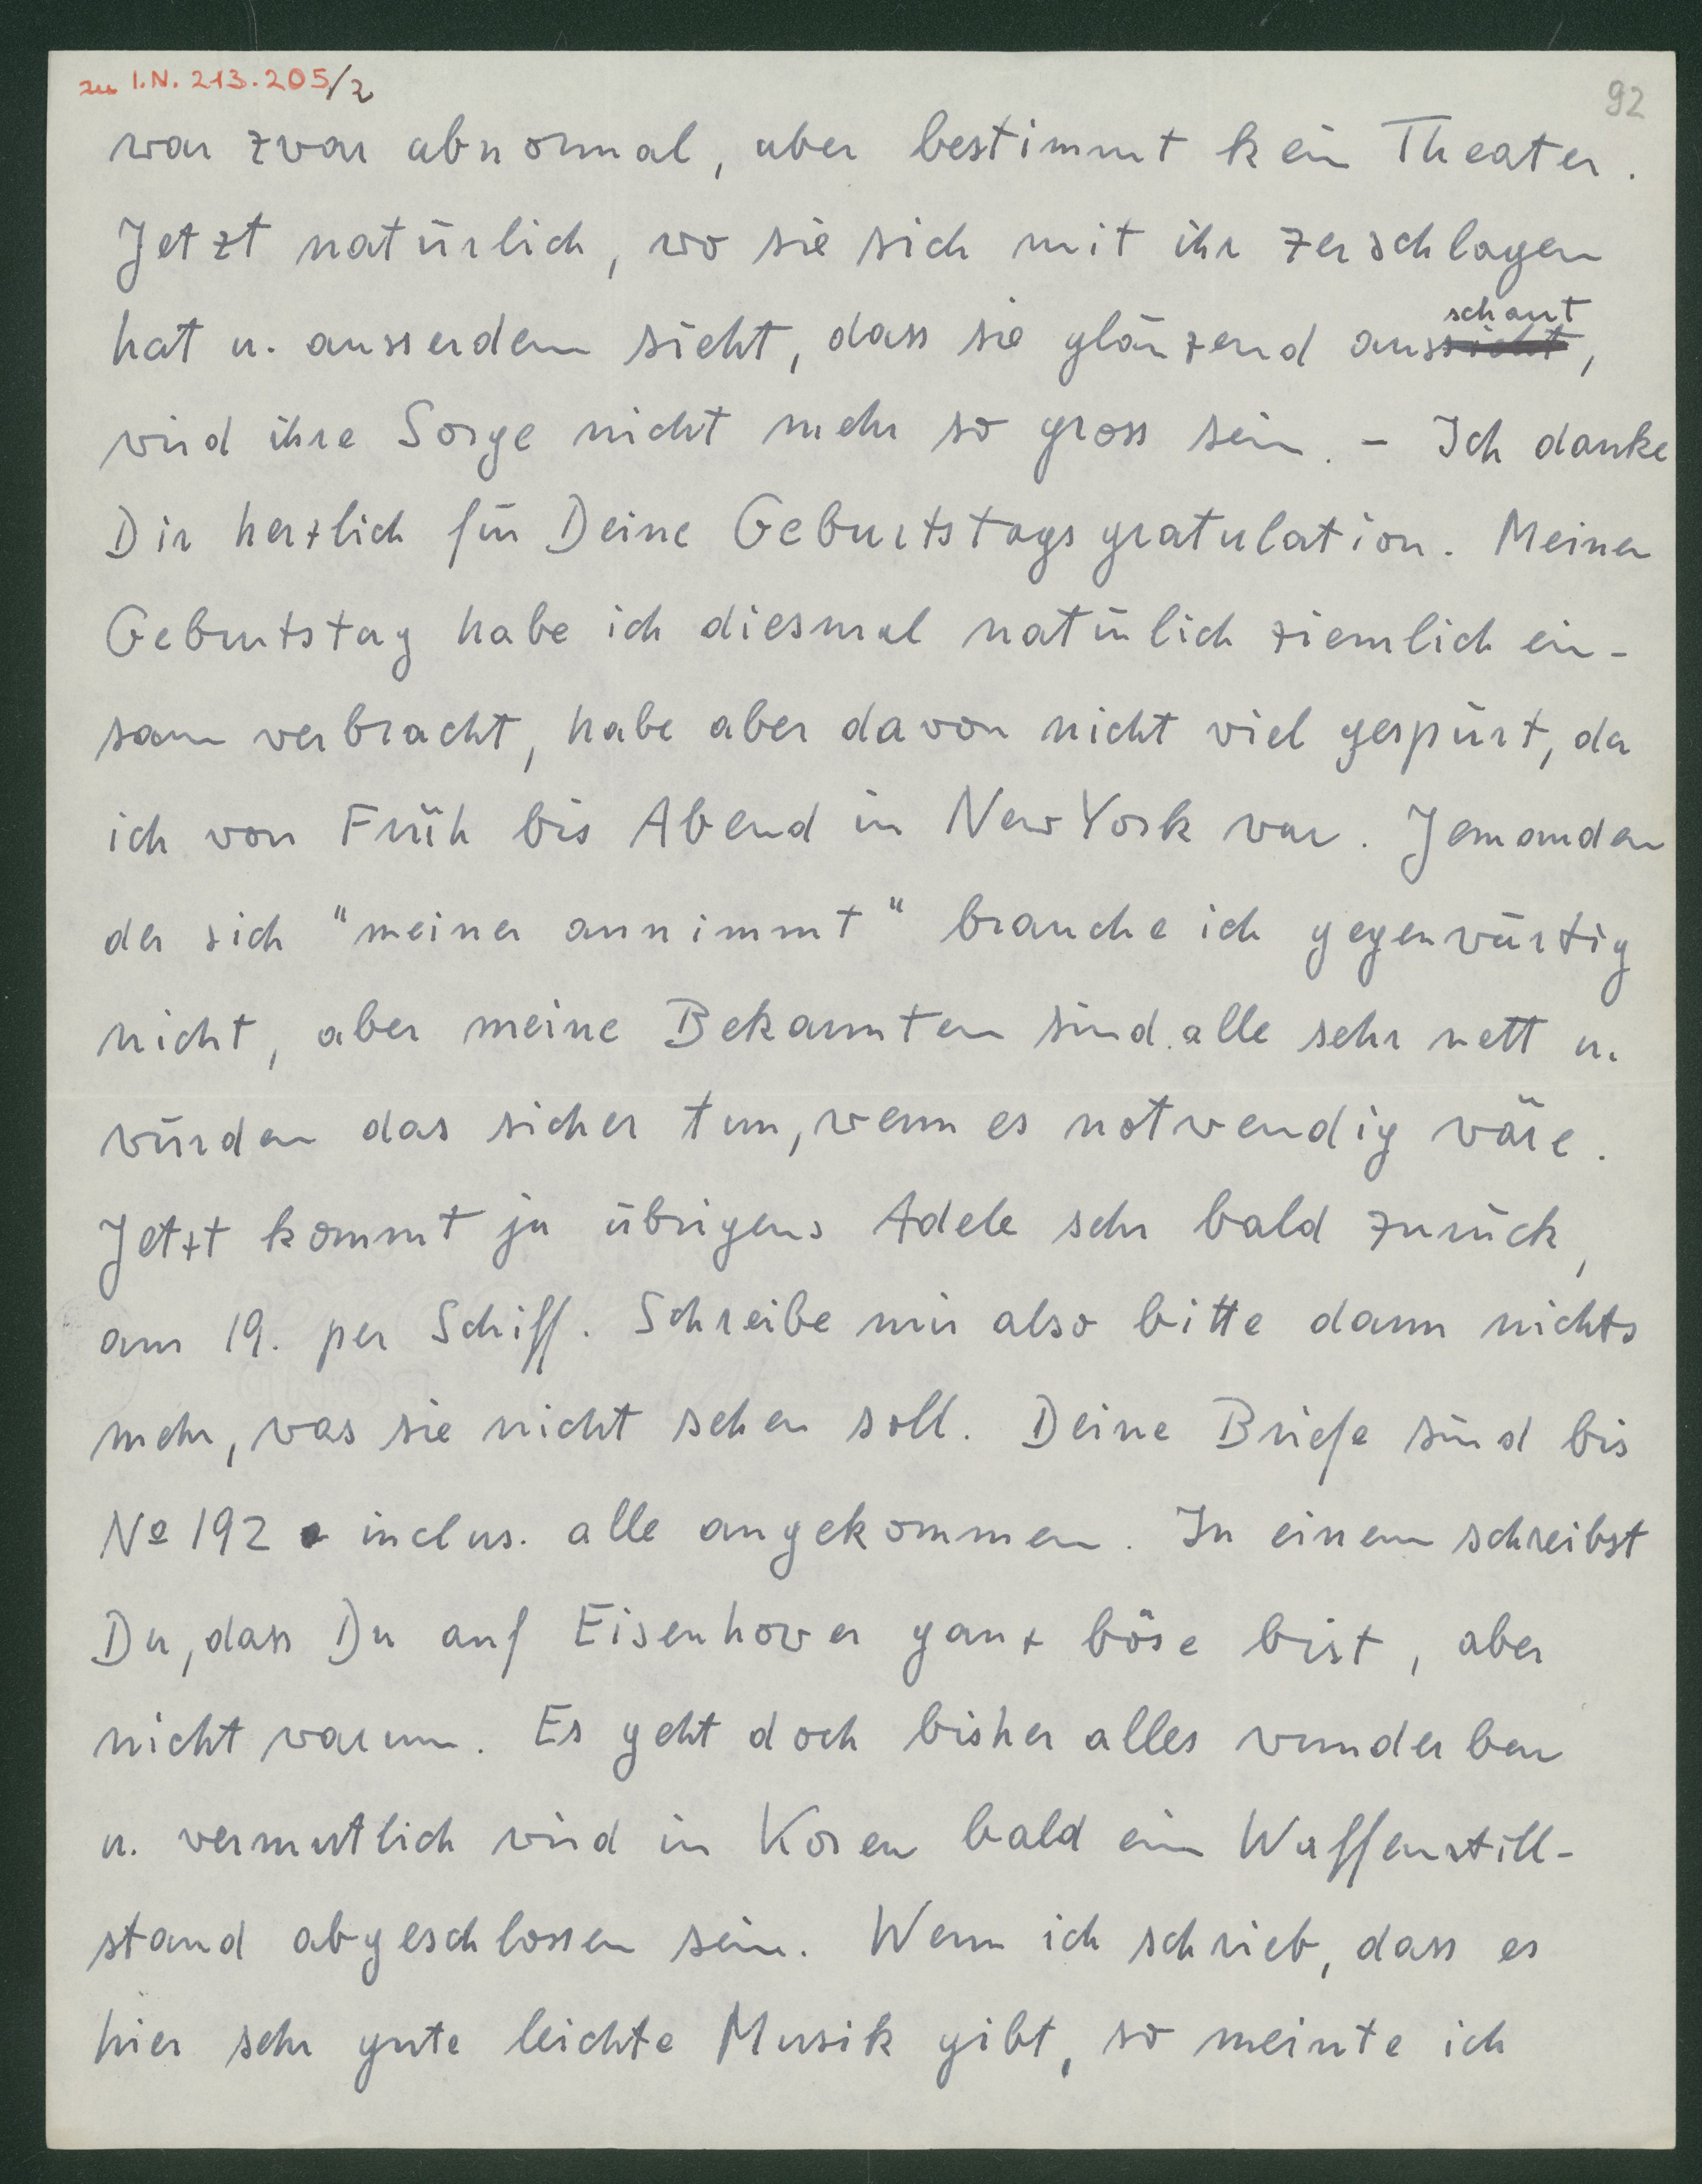 zu I.N. 213.205/2
92
war zwar abnormal, aber bestimmt kein Theater.
Jetzt natürlich, wo sie sich mit ihr zerschlagen
schaut
hat u. ausserdem sieht, dass sie glänzend aussieht,
wird ihre Sorge nicht mehr so gross sein. – Ich danke
Dir herzlich für Deine Geburtstagsgratulation. Meinen
Geburtstag habe ich diesmal natürlich ziemlich ein-
sam verbracht, habe aber davon nicht viel gespürt, da
ich von Früh bis Abend in New York war. Jemanden
der sich "meiner annimmt" brauche ich gegenwärtig
nicht, aber meine Bekannten sind alle sehr nett u.
würden das sicher tun, wenn es notwendig wäre.
Jetzt kommt ja übrigens Adele sehr bald zurück,
am 19. per Schiff. Schreibe mir also bitte dann nichts
mehr, was sie nicht sehen soll. Deine Briefe sind bis
No 192 inclus. alle angekommen. In einem schreibst
Du, dass Du auf Eisenhower ganz böse bist, aber
nicht warum. Es geht doch bisher alles wunderbar
u. vermutlich wird in Korea bald ein Waffenstill-
stand abgeschlossen sein. Wenn ich schrieb, dass es
hier sehr gute leichte Musik gibt, so meinte ich